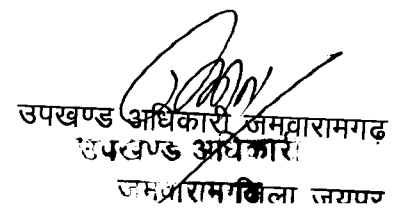 उपखण्ड अधिकारी जमवारामगढ़
उपखण्ड अधिकारी
जमवारामगढ़ जिला जयपुर